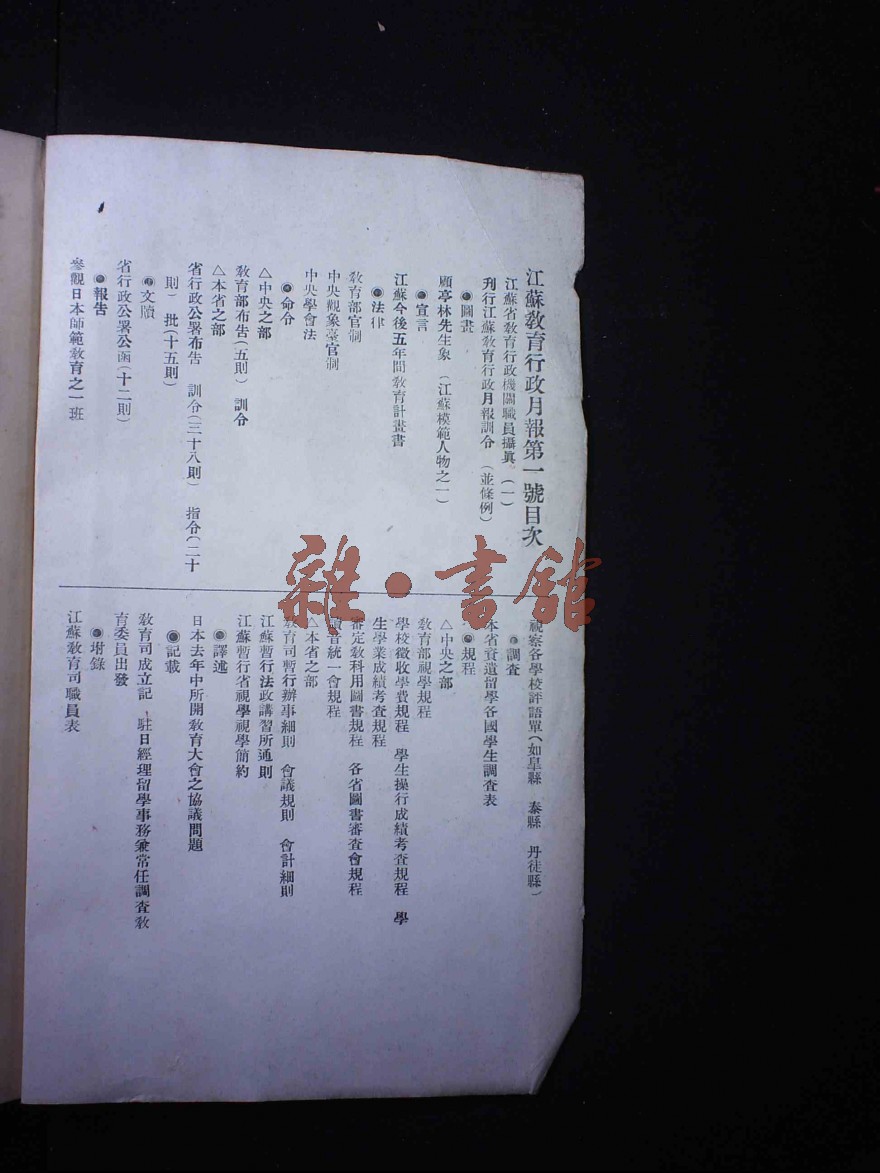 江蘇教育行政月報第一號目次
江蘇省教育行政機關職員攝眞 (一)
刋行江蘇教育行政月報訓令 (並條例)
◉圖畫
顧亭林先生象 (江蘇模範人物之一)
◉宣言
江蘇今後五年間教育計畫書
◉法律
教育部官制
中央觀象臺官制
中央學會法
◉命令
△中央之部
教育部布告(五則) 訓令
△本省之部
省行政公署布告 訓令(三十八則) 指令(二十
則) 批(十五則)
◉文牘
省行政公署公函(十二則)
◉報告
參觀日本師範教育之一班
視察各學校評語單(如皐縣 泰縣 丹徒縣)
◉調査
本省資遣留學各國學生調査表
◉規程
△中央之部
教育部視學規程
學校徵收學費規程 學生操行成績考査規程 學
生學業成績考査規程
審定教科用圖書規程 各省圖書審査會規程
讀音統一會規程
△本省之部
教育司暫行辦事細則 會議規則 會計細則
江蘇暫行法政講習所通則
江蘇暫行省視學視學簡約
◉譯述
日本去年中所開教育大會之協議問題
◉記載
教育司成立記 駐日經理留學事務兼常任調査教
育委員出發
◉坿錄
江蘇教育司職員表
雜·書館